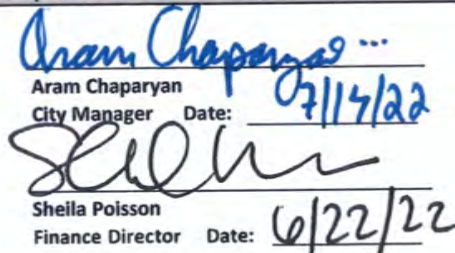 Aram Chaparyan ...
Aram Chaparyan
City Manager Date: 7/14/22
Sheila Poisson
Finance Director Date: 6/22/22